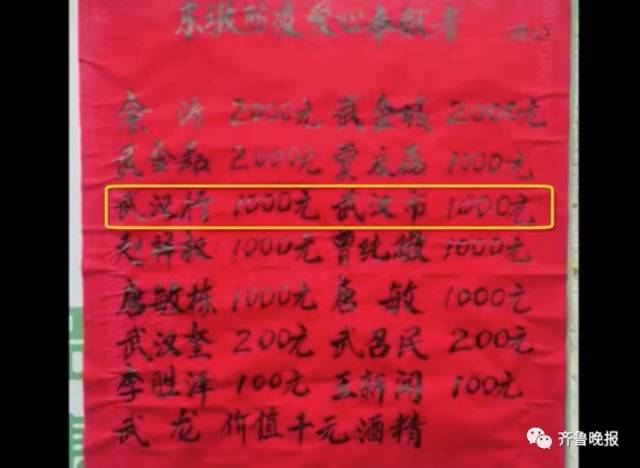 东 防疫爱心奉献者
2000元 武金城 2000元
武金磊 2000元 1000元
武汉行 1000元 武汉市 1000元
1000元 曹纯 1000元
唐敏栋 1000元 唐敏 1000元
武汉奎 200元 武召民 200元
李胜泽 100元 王新闻 100元
武龙 价值千元酒精
齐鲁晚报